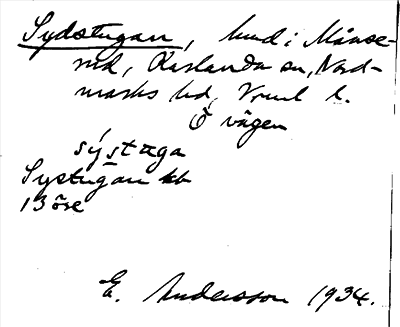 Sydstugan, hmd i Månse-
rud, Karlanda sn, Nord-
marks hd, Vrml l.
Ö vägen
sýstaga
Systugan kb
13 öre
E. Andersson 1934.